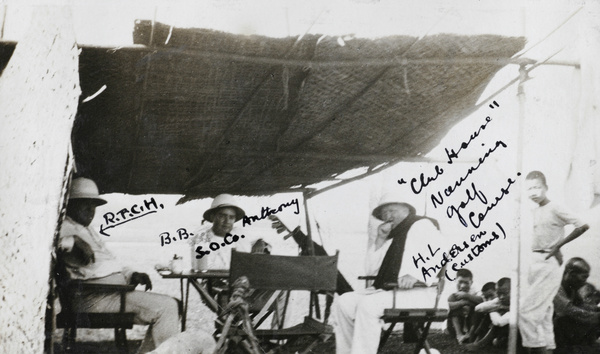 "Club House"
Nanning
golf
Course.
R.T.C.H.
B.B.
S.O.Co. Anthony
H.L
Andersen
(Customs)